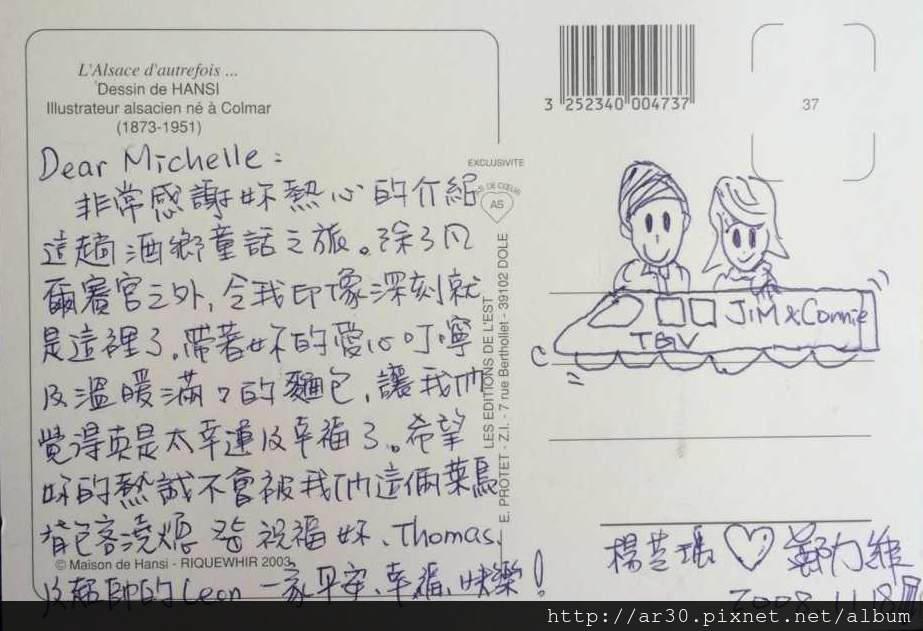 L'Alsace d'autrefois ...
Dessin de HANSI
Illustrateur alsacien né à Colmar
(1873-1951)
Dear Michelle:
非常感謝妳熱心的介紹
這趟酒鄉童話之旅。除了凡
爾賽宮之外,令我印像深刻就
是這裡了。帶著妳的愛心叮嚀
及溫暖滿滿的麵包,讓我們
覺得真是太幸運及幸福了。希望
妳的熱誠不會被我們這倆菜鳥
背包客澆熄 祝福妳、Thomas、
及超帥的Leon一家平安、幸福、快樂!
© Maison de Hansi - RIQUEWHIR 2003
EXCLUSIVITE
AS DE CŒUR
AS
LES EDITIONS DE L'EST
E. PROTET - Z.I. - 7 rue Bertholet - 39102 DOLE
3 252340 004737
37
JiM & Connie
TGV
楊 鄭力維
2008.11.18
http://ar30.pixnet.net/album